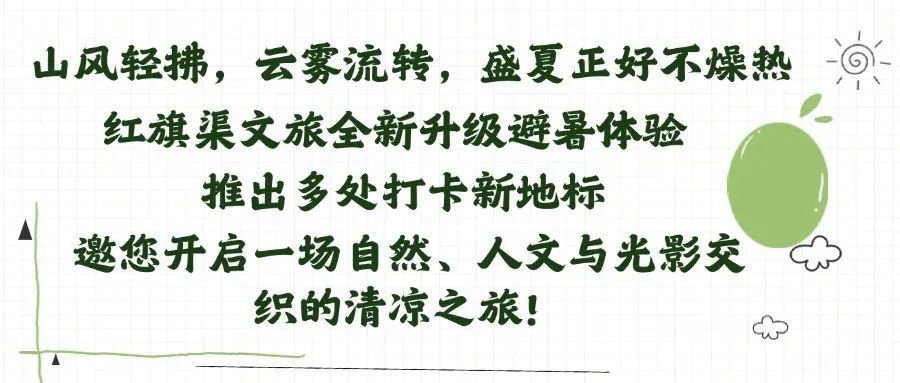 山风轻拂，云雾流转，盛夏正好不燥热
红旗渠文旅全新升级避暑体验
推出多处打卡新地标
邀您开启一场自然、人文与光影交
织的清凉之旅！